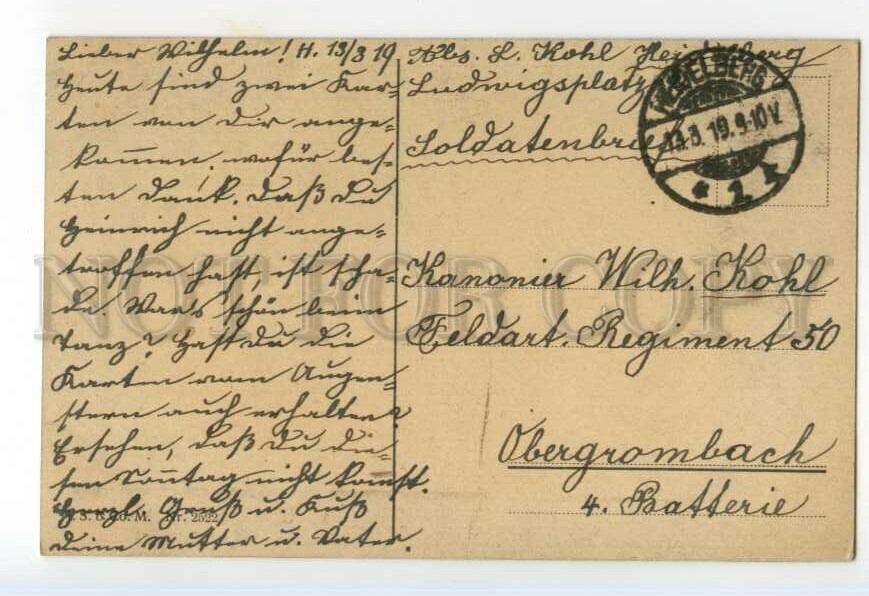 Lieber Wilhelm! H. 13/3 19
Heute sind zwei Kar=
ten von Dir ange=
kommen, wofür bes=
ten Dank. Daß Du
Heinrich nicht ange=
troffen hast, ist scha=
de. War's schön beim
Tanz? Hast Du die
Karten vom Augen=
stern auch erhalten?
Ersehen, daß Du die=
sen Sonntag nicht komst.
Herzl. Gruß u. Kuß
Deine Mutter u. Vater.
Abs. L. Kohl Heidelberg
Ludwigsplatz
Soldatenbrief
HEIDELBERG
13.3.19.9-10V.
* 1 k
Kanonier Wilh. Kohl
Feldart. Regiment 50
Obergrombach
4. Batterie
M. Nr. 2522
NOT FOR COPY